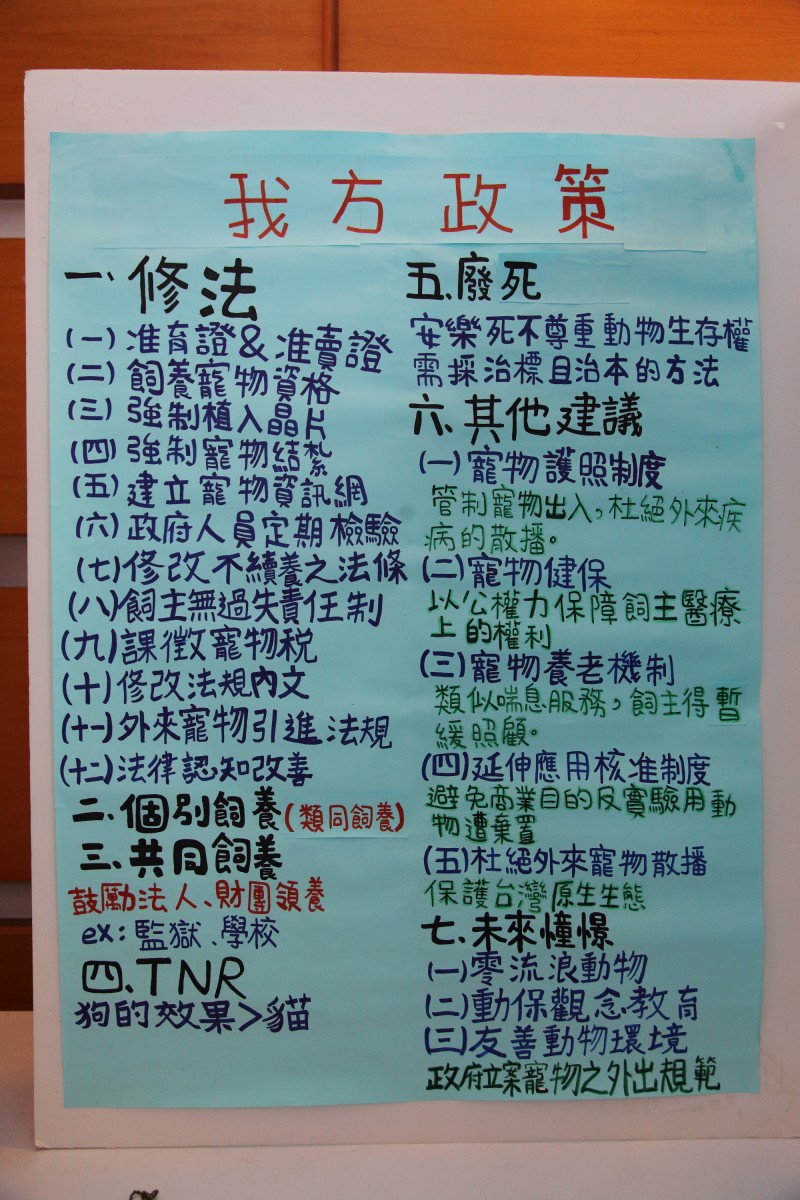 我方政策
一、修法
(一)准育證&准賣證
(二)飼養寵物資格
(三)強制植入晶片
(四)強制寵物結紮
(五)建立寵物資訊網
(六)政府人員定期檢驗
(七)修改不續養之法條
(八)飼主無過失責任制
(九)課徵寵物稅
(十)修改法規內文
(十一)外來寵物引進法規
(十二)法律認知改善
二、個別飼養(類同飼養)
三、共同飼養
鼓勵法人、財團領養
ex:監獄、學校
四、TNR
狗的效果>貓
五、廢死
安樂死不尊重動物生存權
需採治標且治本的方法
六、其他建議
(一)寵物護照制度
管制寵物出入,杜絕外來疾
病的散播。
(二)寵物健保
以公權力保障飼主醫療
上的權利
(三)寵物養老機制
類似喘息服務,飼主得暫
緩照顧。
(四)延伸應用核准制度
避免商業目的反實驗用動
物遭棄置
(五)杜絕外來寵物散播
保護台灣原生生態
七、未來憧憬
(一)零流浪動物
(二)動保觀念教育
(三)友善動物環境
政府立案寵物之外出規範